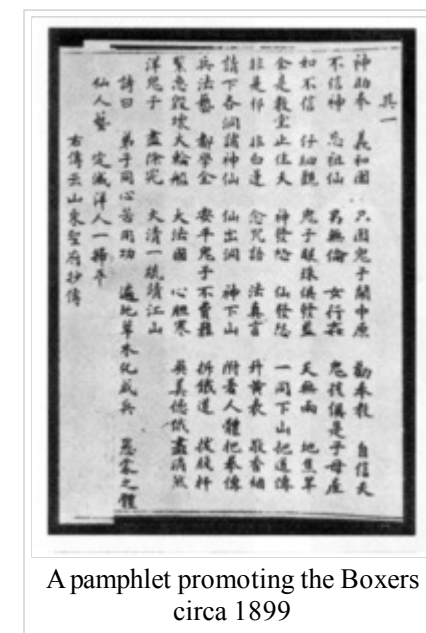 其一
神助拳 義和團 只因鬼子鬧中原 勸奉教 自信天
不信神 忘祖仙 男無倫 女行姦 鬼孩俱是子母產
如不信 仔細觀 鬼子眼珠俱發藍 天無雨 地焦旱
全是教堂止住天 神發怒 仙發怨 一同下山把道傳
非是邪 非白蓮 念咒語 法真言 升黃表 敬香烟
請下各洞諸神仙 仙出洞 神下山 附著人體把拳傳
兵法藝 都學全 要平鬼子不費難 拆鐵道 拔線杆
緊急毀壞火輪船 大法國 心胆寒 英美德俄盡消然
洋鬼子 盡除完 大清一統靖江山
詩曰 弟子同心苦用功 遍地草木化成兵 愚蒙之體
仙人藝 定滅洋人一掃平
右傳云山東聖府抄傳
A pamphlet promoting the Boxers
circa 1899